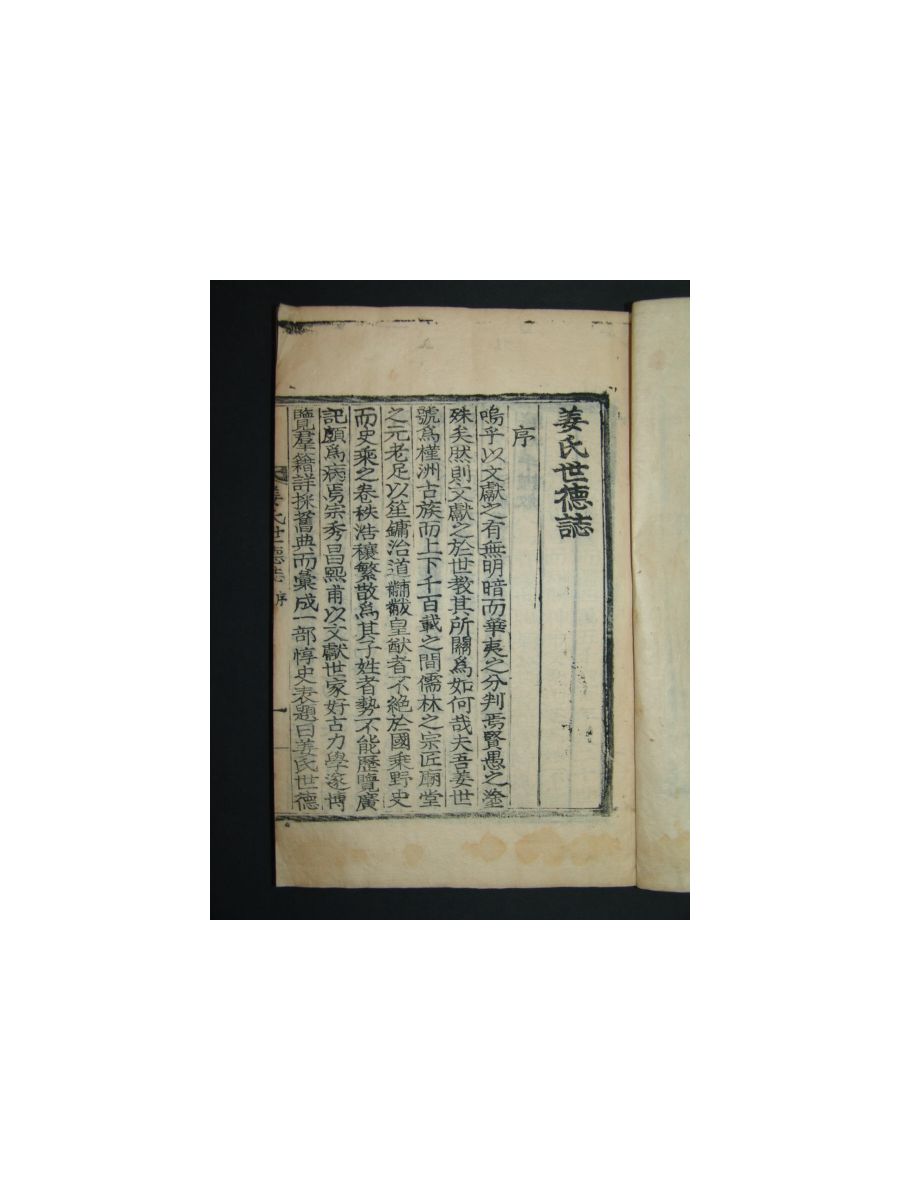 姜氏世德誌
序
嗚乎以文獻之有無明暗而華夷之分判焉賢愚之塗
殊矣然則文獻之於世教其所關爲如何哉夫吾姜世
號爲槿洲古族而上下千百載之間儒林之宗匠廟堂
之元老足以笙鏞治道黼黻皇猷者不絶於國乘野史
而史乘之卷秩浩穰繁散爲其子姓者勢不能歷覽廣
記頗爲病焉宗秀昌熙甫以文獻世家好古力學遂博
覽羣籍詳採舊典而彙成一部惇史表題曰姜氏世德
姜氏世德誌 序 一